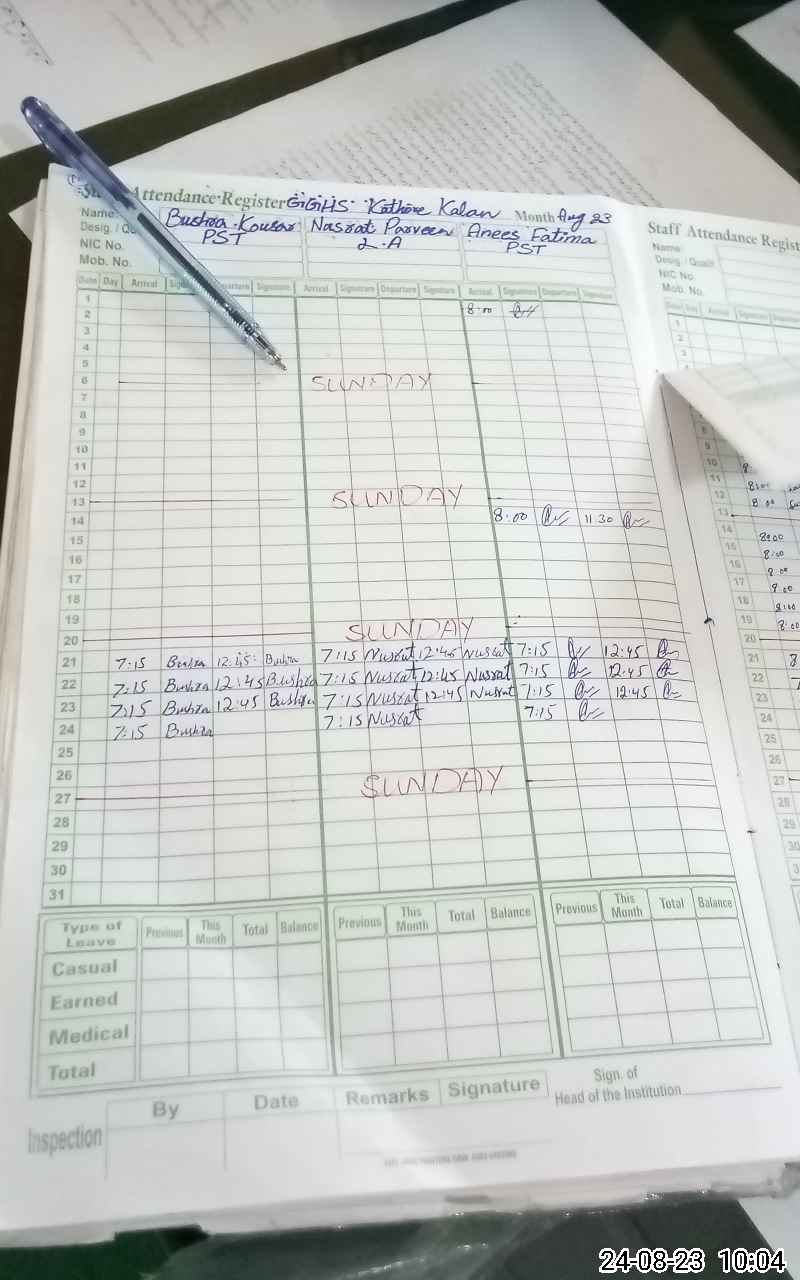 Attendance Register GGHS Kathore Kalan Month Aug 23
Name: Bushra Kousar Nasrat Parveen Anees Fatima
Desig. / PST L.A PST
NIC No.
Mob. No.
Date Day Arrival Departure Signature Arrival Signature Departure Signature Arrival Signature Departure Signature
1
2 8:00
3
4
5
6 SUNDAY
7
8
9
10
11
12
13 SUNDAY
14 8:00 11:30
15
16
17
18
19
20 SUNDAY
21 7:15 Bushra 12:45 Bushra 7:15 Nusrat 12:45 Nusrat 7:15 12:45
22 7:15 Bushra 12:45 Bushra 7:15 Nusrat 12:45 Nusrat 7:15 12:45
23 7:15 Bushra 12:45 Bushra 7:15 Nusrat 12:45 Nusrat 7:15 12:45
24 7:15 Bushra 7:15 Nusrat 7:15
25
26
27 SUNDAY
28
29
30
31
Type of Leave Previous This Month Total Balance Previous This Month Total Balance Previous This Month Total Balance
Casual
Earned
Medical
Total
Inspection By Date Remarks Signature
Sign. of
Head of the Institution
Staff Attendance Regist
Name:
Desig. / Quali
NIC No.
Mob. No.
Arrival Signature
1
2
3
8
9
10
11 8:00
12 8:00
13
14 8:00
15 8:00
16 8:00
17 8:00
18 8:00
19 8:00
20
21 8
22
23
24
25
26
27
28
29
30
24-08-23 10:04